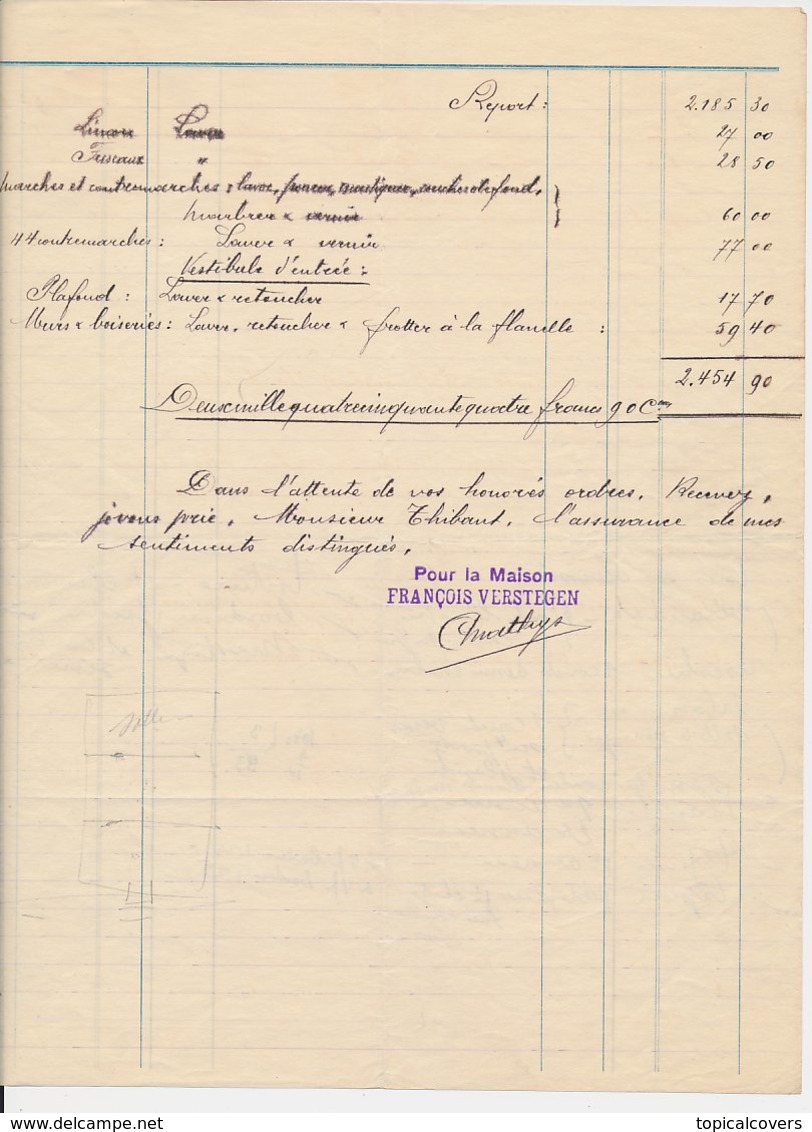 Report : 2.185 30
Limon Laver 27 00
Fuseaux " 28 50
Marches et contremarches : laver, poncer, mastiquer, couches de fond,
marbrer & vernir 60 00
44 contremarches : Laver & vernir 77 00
Vestibule d'entrée :
Plafond : Laver & retoucher 17 70
Murs & boiseries : Laver, retoucher & frotter à la flanelle : 59 40
2.454 90
Deux mille quatre cinquante quatre francs 90 Cmes
Dans l'attente de vos honorés ordres, Recevez,
je vous prie, Monsieur Thibaut, l'assurance de mes
sentiments distingués,
Pour la Maison
FRANÇOIS VERSTEGEN
delcampe.net
topicalcovers